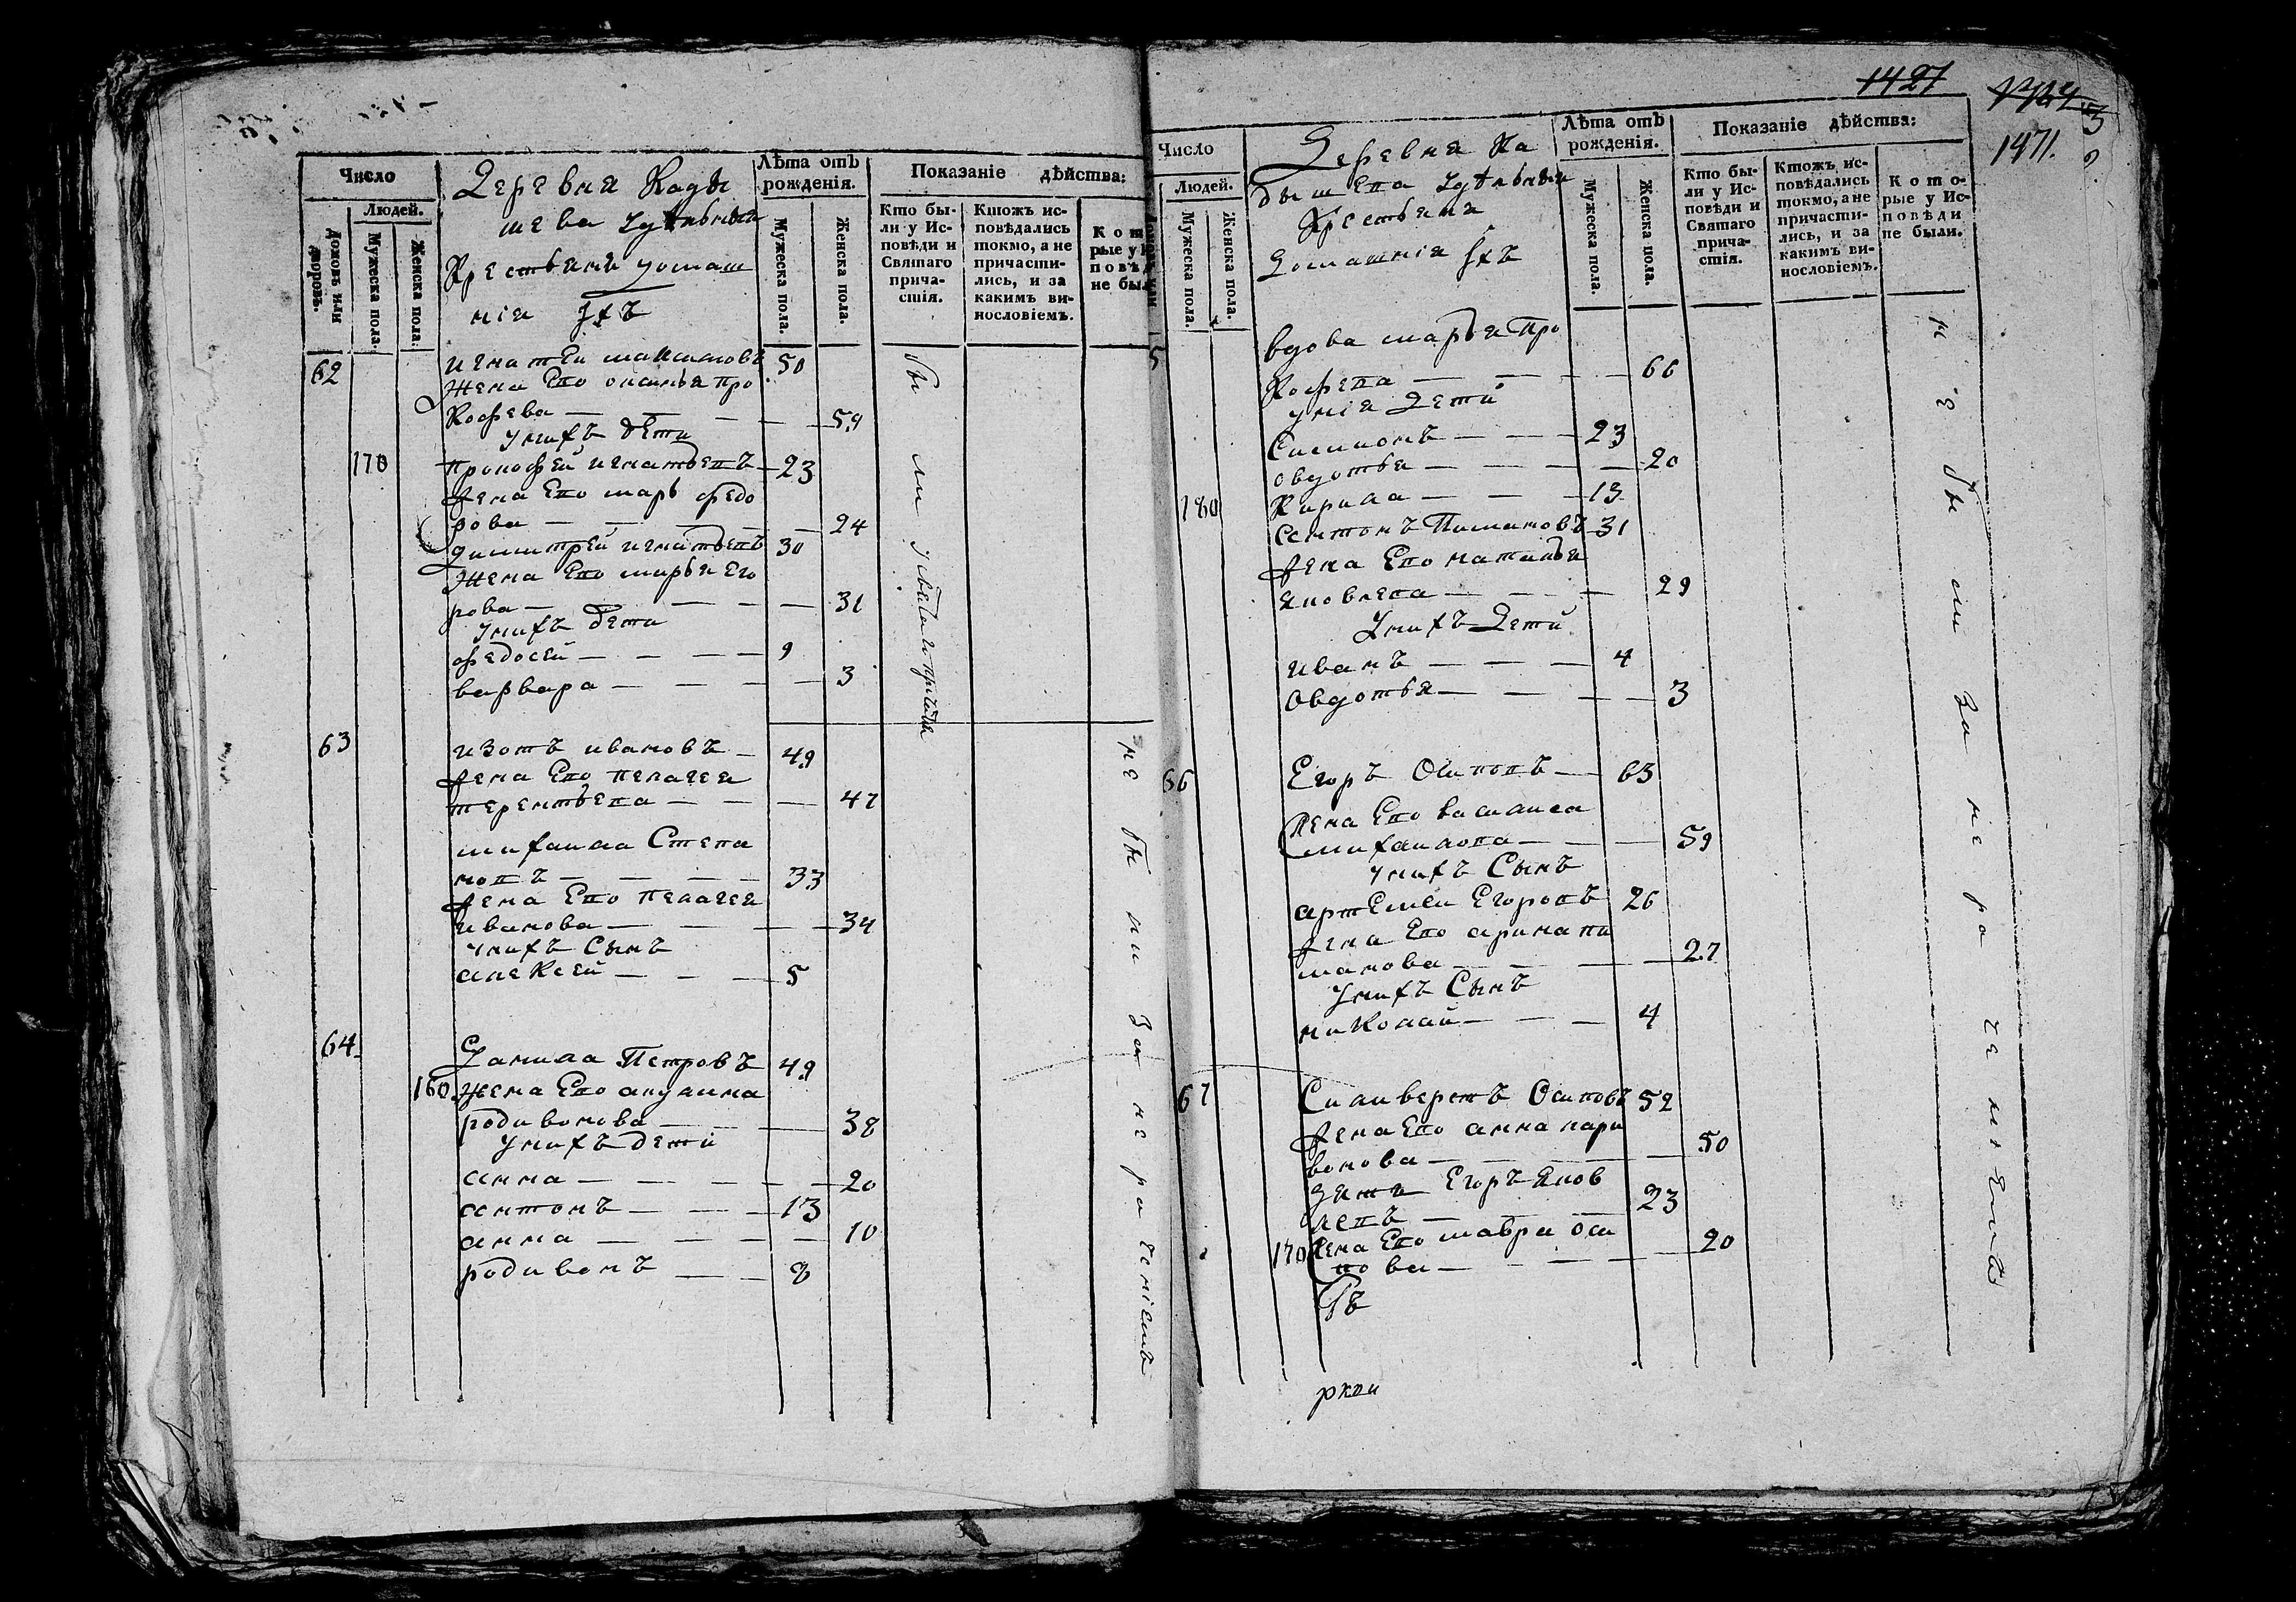 Число
Людей.
Домовъ или дворовъ.
Мужеска пола.
Женска пола.
Деревня Кады
шева Удѣльныя
Крестьяня домаш
нія Ихъ
Лѣта отъ
рожденія.
Мужеска пола.
Женска пола.
Показаніе дѣйства:
Кто бы-
ли у Ис-
повѣди и
Святаго
прича-
стія.
Ктожъ ис-
повѣдались
токмо, а не
причасти-
лись, и за
какимъ ви-
нословіемъ.
К о т
рые у И
п о в ѣ д
не был
62 игнатей максимовъ 50
жена Ево оксинья про
кофева — — — 59
унихъ дети
170 прокофей игнатьевъ — 23
жена Ево марь федо
рова — — — 24
димитрей игнатьевъ 30
жена Ево марья Его
рова — — — 31
унихъ дети
федосей — — — 9
варвара — — — 3
63 изотъ ивановъ — 49
жена Ево пелагея
терентьева — — — 47
михаила Степа
новъ — — — 33
жена Ево пелагея
иванова — — — 34
унихъ Сынъ
алексей — — — 5
64 Данила Петровъ 49
160 жена Ево акулина
родивонова — — 38
унихъ дети
анна — — — 20
антонъ — — — 13
анна — — — 10
родивонъ — — 8
бы ли
не бы ли За не ра ченіемъ
1427
1471.
Число
Людей.
Мужеска пола.
Женска пола.
Деревня Ка
дышева Удѣльныя
Крестьяня
Домашнія Ихъ
Лѣта отъ
рожденія.
Мужеска пола.
Женска пола.
Показаніе дѣйства:
Кто бы-
ли у Ис-
повѣди и
Святаго
прича-
стія.
Ктожъ ис-
повѣдались
токмо, а не
причасти-
лись, и за
какимъ ви-
нословіемъ.
К о т о-
рые у Ис-
п о в ѣ д и
не были.
5 вдова марья Про
кофева — — — 66
унія Дети
Симионъ — — — 23
овдотья — — — 20
180 Кирила — — — 13
антонъ Пимановъ 31
жена Ево наталья
яковлева — — — 29
Унихъ Дети
иванъ — — — 4
Овдотья — — — 3
66 Егоръ Осиповъ — 63
жена Ево василиса
михаилова — — — 59
унихъ Сынъ
артемеи Егоровъ 26
жена Ево арина пи
манова — — — 27
Унихъ Сынъ
николай — — — 4
67 Силиверстъ Осиповъ 52
жена Ево анна лари
вонова — — — 50
зять Егоръ яков
левъ — — — 23
170 жена Ево мавра оси
пова — — — 20
не бы ли За не ра че ніемъ